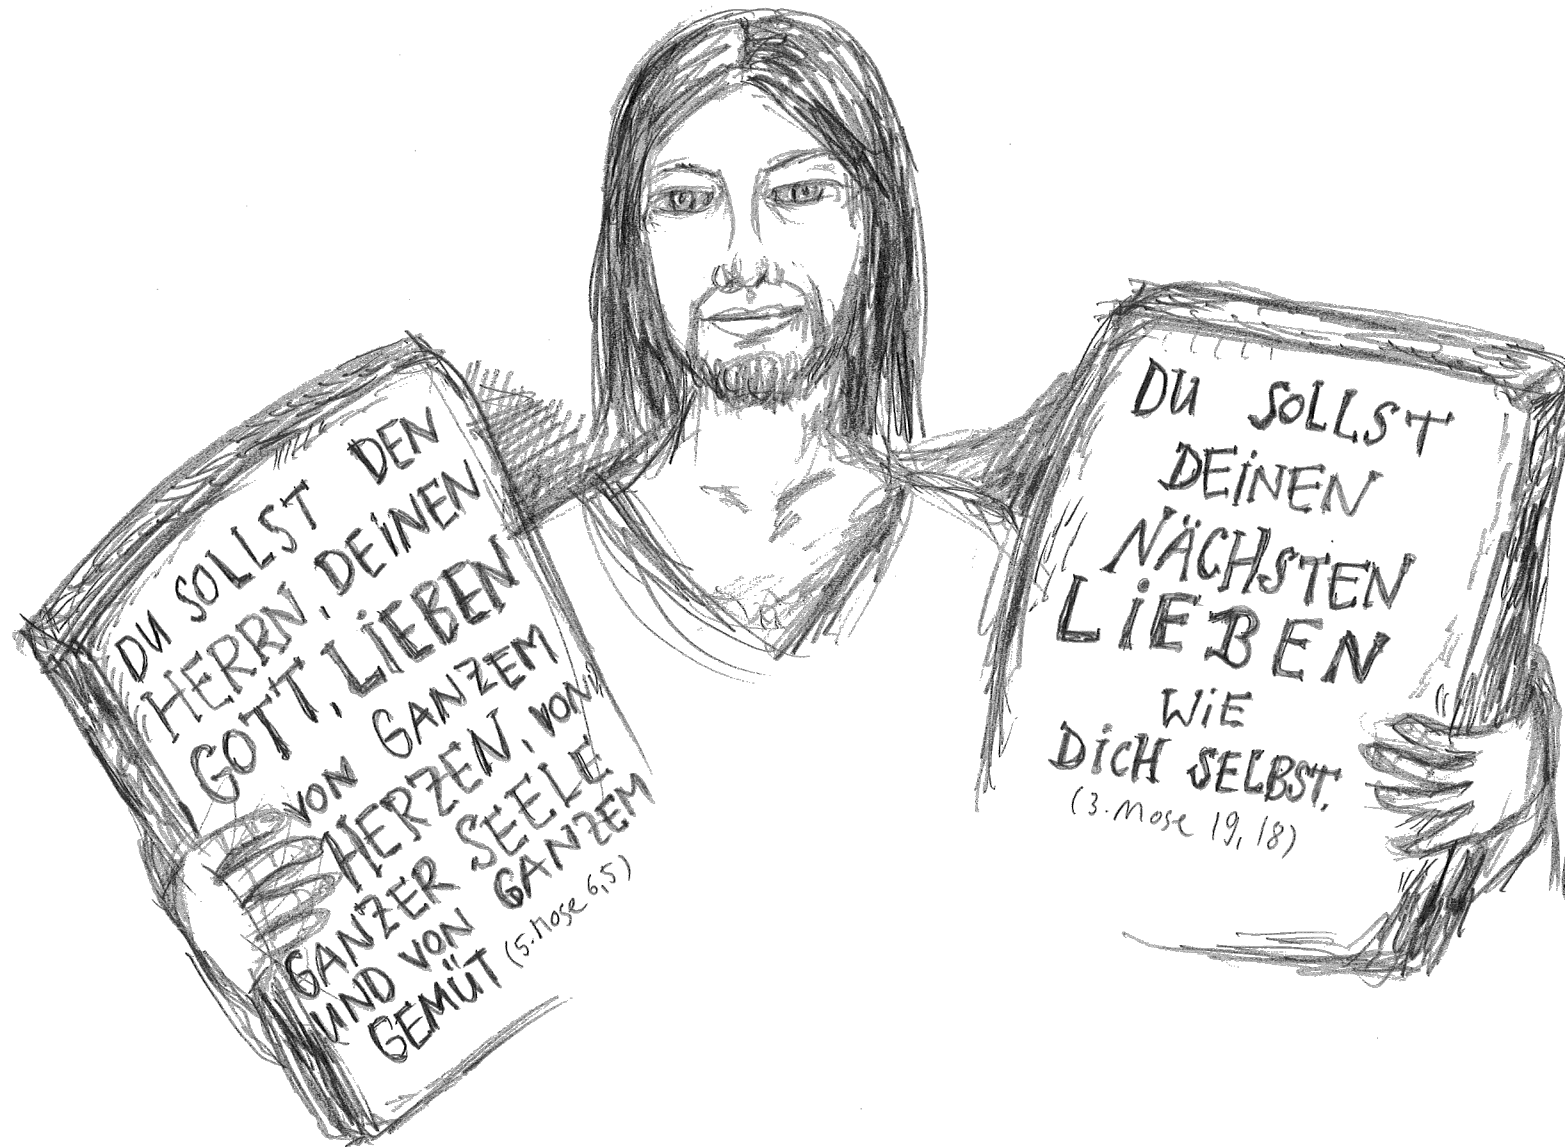 DU SOLLST DEN
HERRN, DEINEN
GOTT, LIEBEN
VON GANZEM
HERZEN, VON
GANZER SEELE
UND VON GANZEM
GEMÜT (5. Mose 6,5)
DU SOLLST
DEINEN
NÄCHSTEN
LIEBEN
WIE
DICH SELBST.
(3. Mose 19,18)